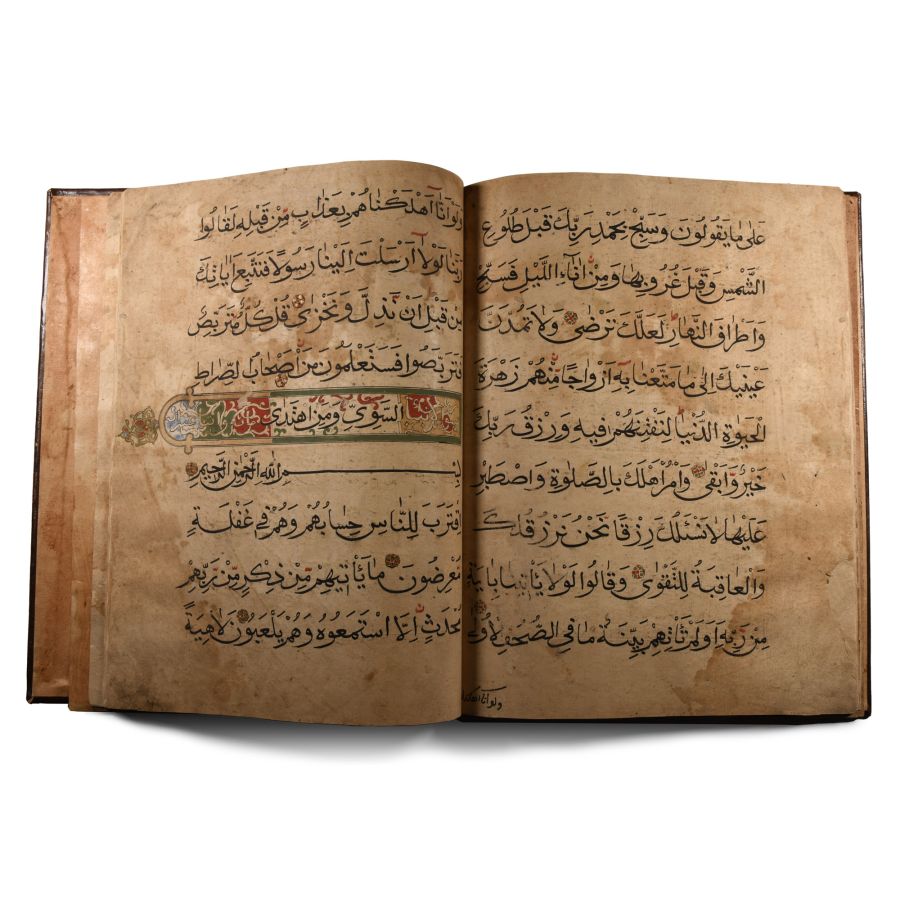 عَلَىٰ مَا يَقُولُونَ وَسَبِّحْ بِحَمْدِ رَبِّكَ قَبْلَ طُلُوعِ
الشَّمْسِ وَقَبْلَ غُرُوبِهَا وَمِنْ اٰنَاۤءِ الَّيْلِ فَسَبِّحْ
وَاَطْرَافَ النَّهَارِ لَعَلَّكَ تَرْضٰى وَلَا تَمُدَّنَّ
عَيْنَيْكَ اِلٰى مَا مَتَّعْنَا بِهِ اَزْوَاجًا مِنْهُمْ زَهْرَةَ
الْحَيٰوةِ الدُّنْيَا لِنَفْتِنَهُمْ فِيهِ وَرِزْقُ رَبِّكَ
خَيْرٌ وَاَبْقٰى وَأْمُرْ اَهْلَكَ بِالصَّلٰوةِ وَاصْطَبِرْ
عَلَيْهَا لَا نَسْئَلُكَ رِزْقًا نَحْنُ نَرْزُقُكَ
وَالْعَاقِبَةُ لِلتَّقْوٰى وَقَالُوا لَوْلَا يَأْتِينَا بِاٰيَةٍ
مِنْ رَبِّهِ اَوَلَمْ تَأْتِهِمْ بَيِّنَةُ مَا فِي الصُّحُفِ الْاُولٰى
ولو انا اهلكنا
وَلَوْ اَنَّا اَهْلَكْنَاهُمْ بِعَذَابٍ مِنْ قَبْلِهِ لَقَالُوا
رَبَّنَا لَوْلَا اَرْسَلْتَ اِلَيْنَا رَسُولًا فَنَتَّبِعَ اٰيَاتِكَ
مِنْ قَبْلِ اَنْ نَذِلَّ وَنَخْزٰى قُلْ كُلٌّ مُتَرَبِّصٌ
فَتَرَبَّصُوا فَسَتَعْلَمُونَ مَنْ اَصْحَابُ الصِّرَاطِ
السَّوِيِّ وَمَنِ اهْتَدٰى
بِسْمِ اللهِ الرَّحْمٰنِ الرَّحِيمِ
اِقْتَرَبَ لِلنَّاسِ حِسَابُهُمْ وَهُمْ فِي غَفْلَةٍ
مُعْرِضُونَ مَا يَأْتِيهِمْ مِنْ ذِكْرٍ مِنْ رَبِّهِمْ
مُحْدَثٍ اِلَّا اسْتَمَعُوهُ وَهُمْ يَلْعَبُونَ لَاهِيَةً